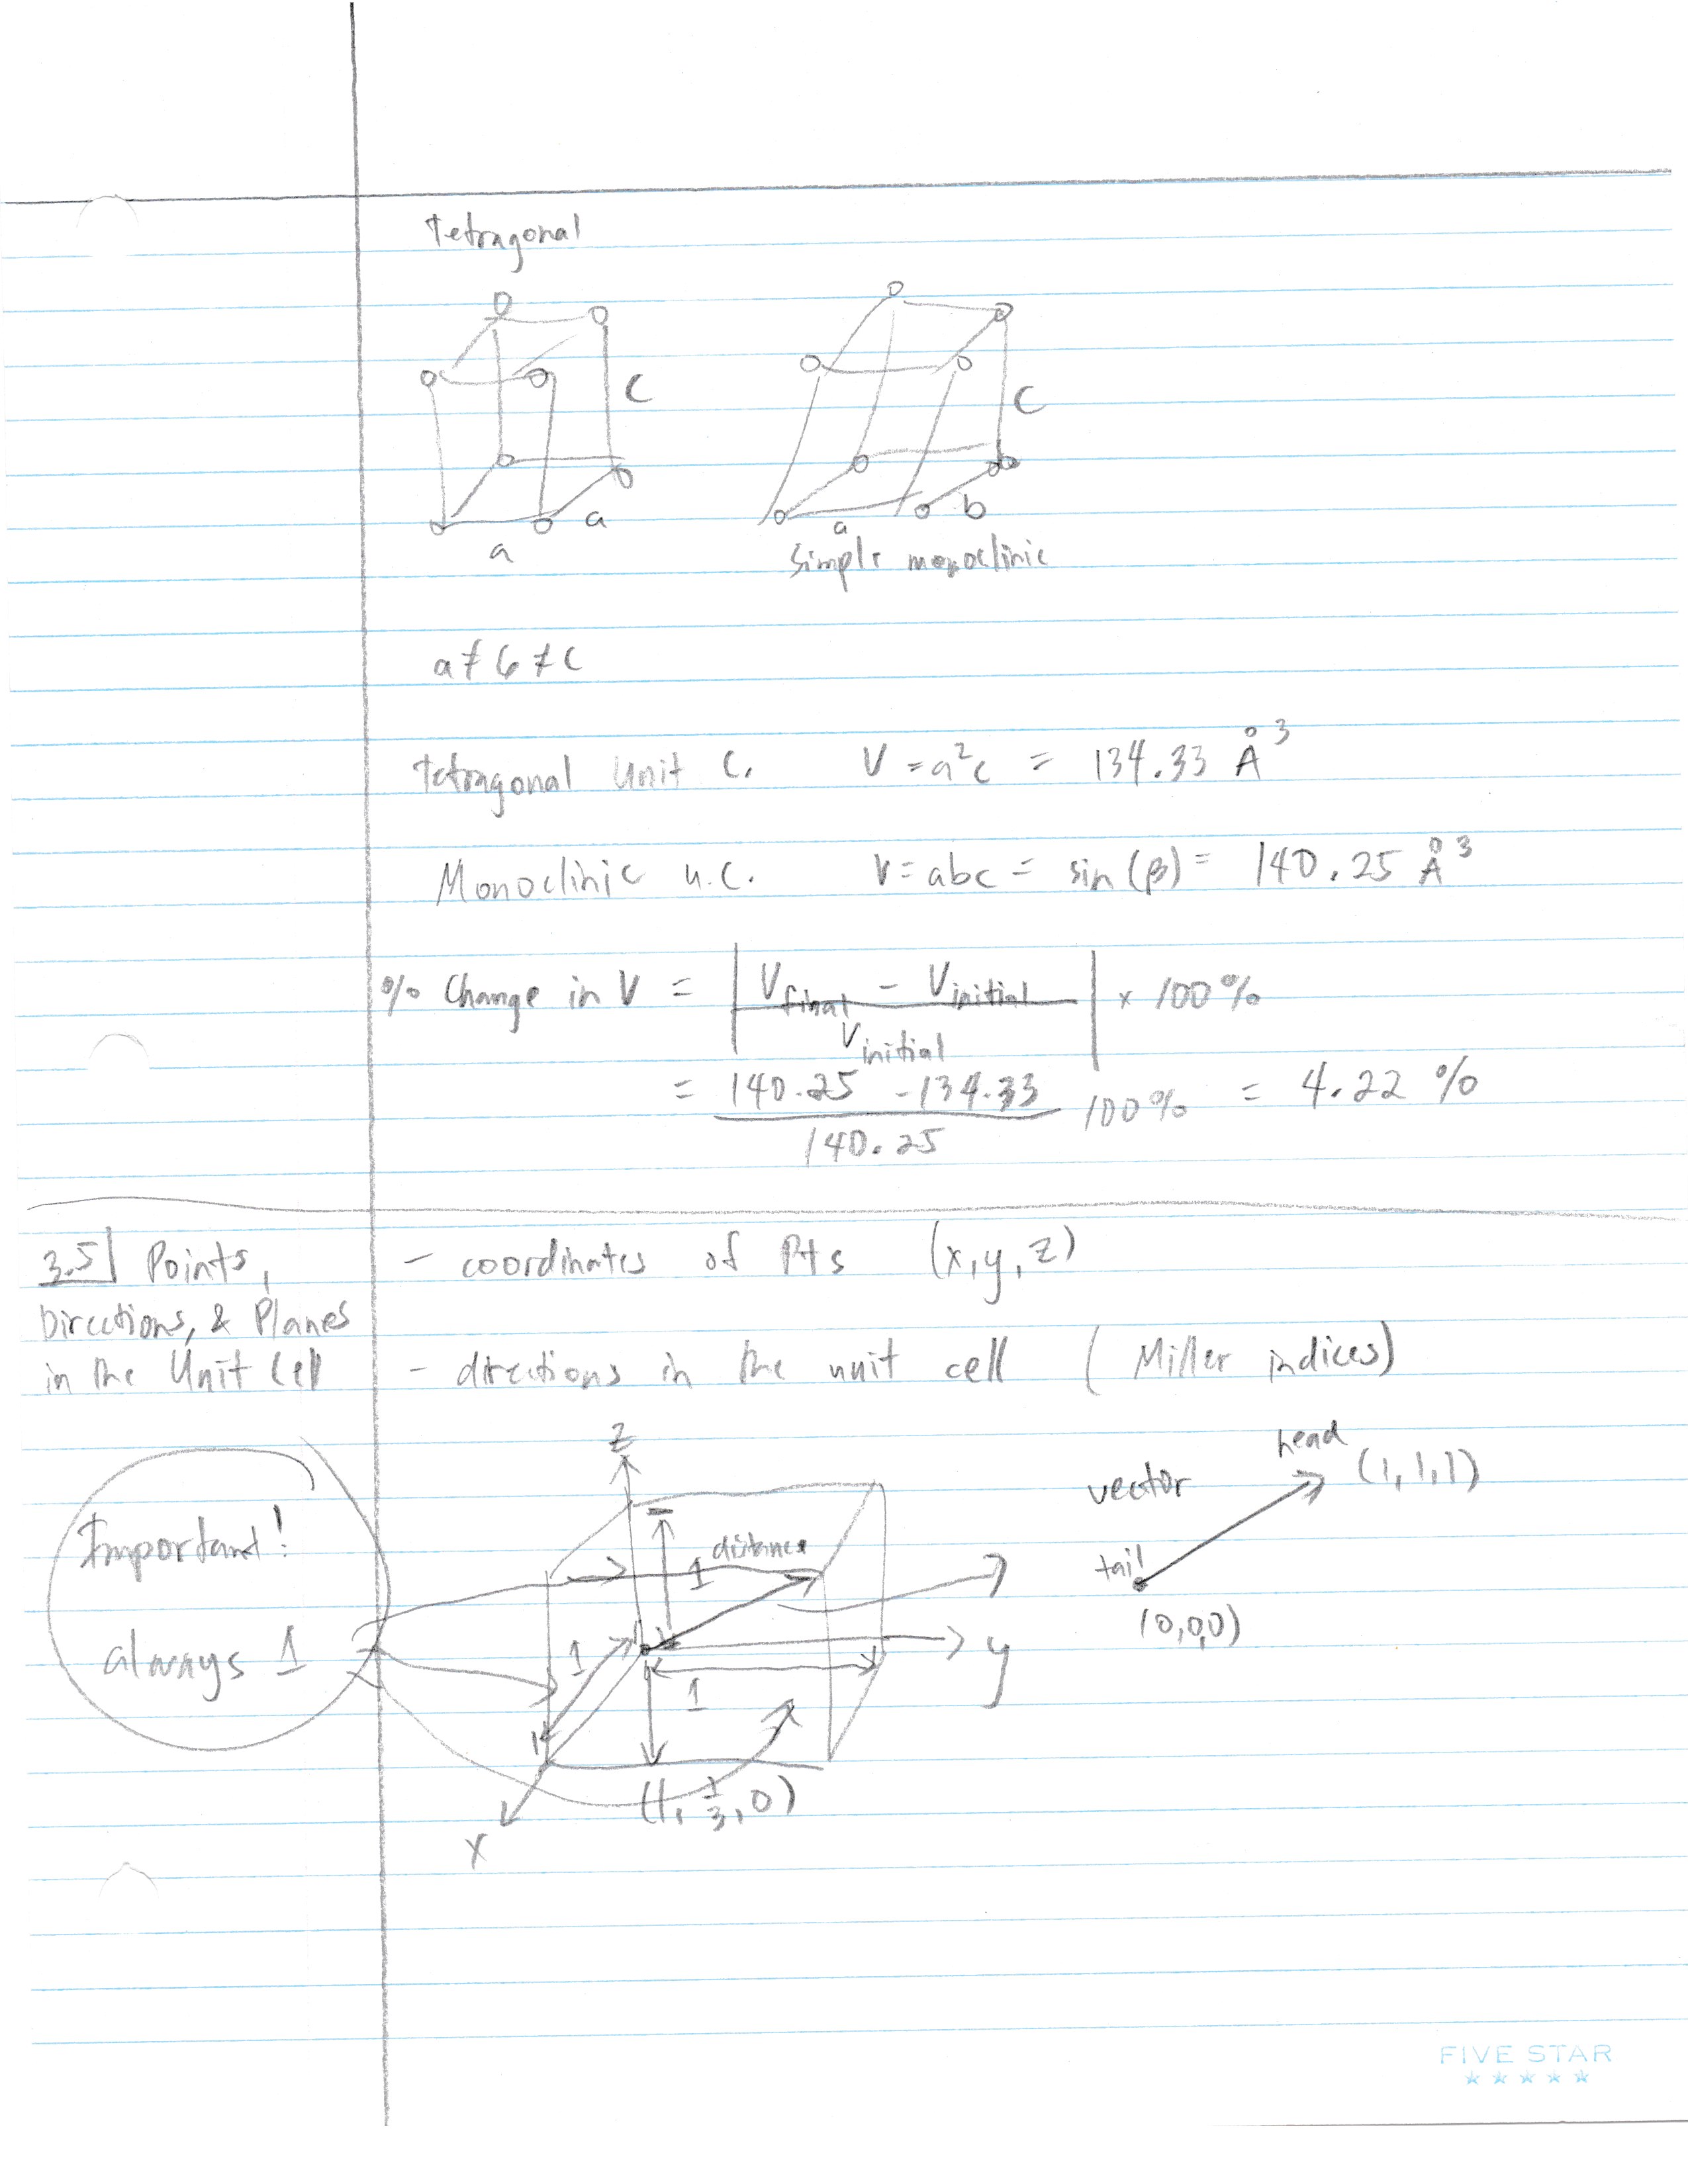 Tetragonal
c
c
a
a
a
b
Simple monoclinic
a ≠ b ≠ c
Tetragonal Unit C. V = a²c = 134.33 Å³
Monoclinic u.c. V = abc = sin(β) = 140.25 Å³
% Change in V = | V final - V initial / V initial | x 100%
= 140.25 - 134.33 / 140.25 100% = 4.22 %
3.5 Points,
Directions, & Planes
in the Unit Cell
- coordinates of Pts (x, y, z)
- directions in the unit cell (Miller indices)
Important!
always 1
z
1 distance
1
1
y
(1, 1/3, 0)
x
vector
head (1, 1, 1)
tail
(0,0,0)
FIVE STAR